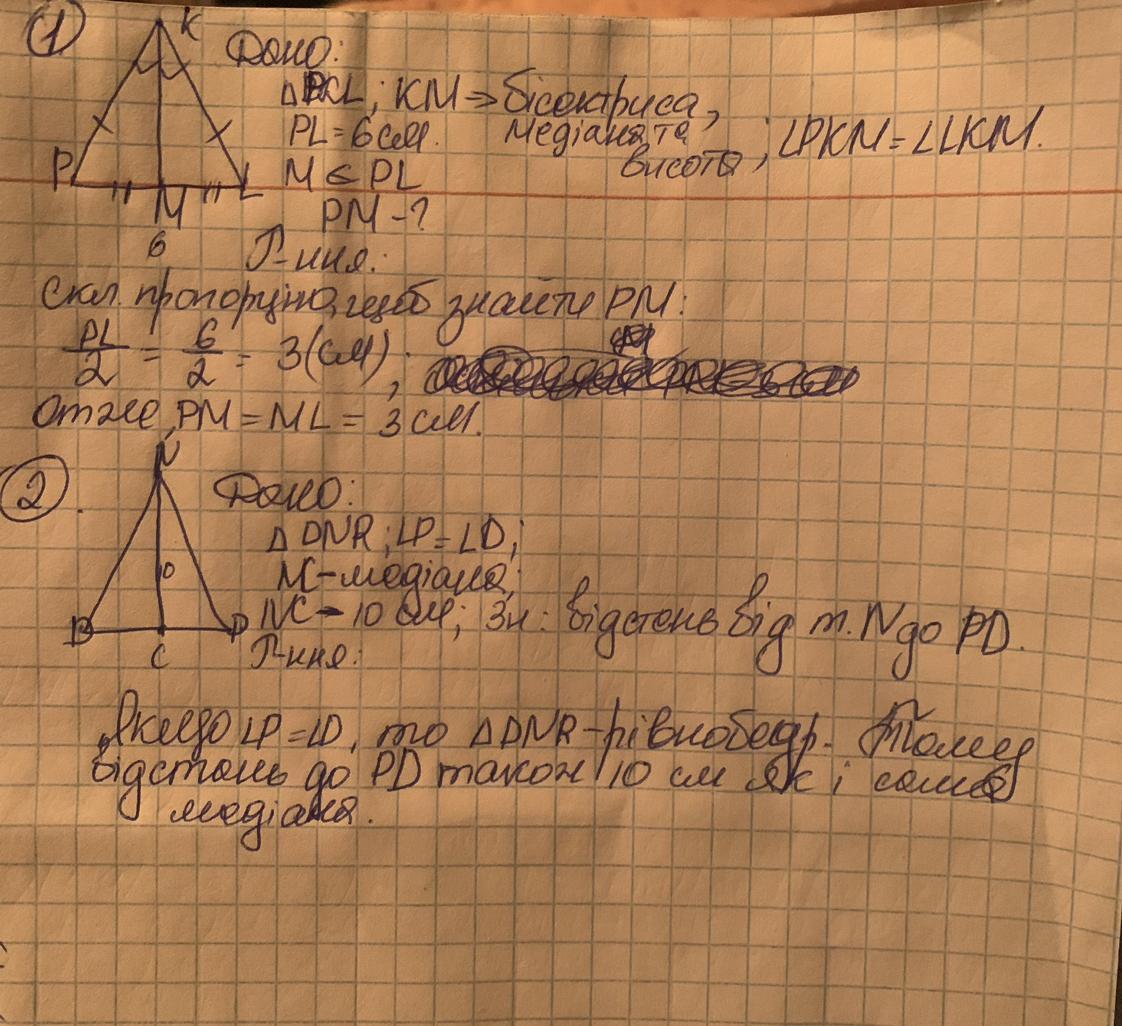 1
K
Дано:
△PKL; KM → бісектриса,
PL = 6 см. медіана та
висота; ∠PKM = ∠LKM.
P L M ∈ PL
M PM - ?
6 Р-ння:
скл. пропорцію, щоб знайти PM:
PL/2 = 6/2 = 3 (см);
отже, PM = ML = 3 см.
N
2. Дано:
△DNR; ∠P = ∠D;
10 NC - медіана;
NC - 10 см; Зн: відстань від т. N до PD.
D P
C Р-ння:
Якщо ∠P = ∠D, то △DNR - рівнобедр. Тому
відстань до PD також 10 см як і сама
медіана.